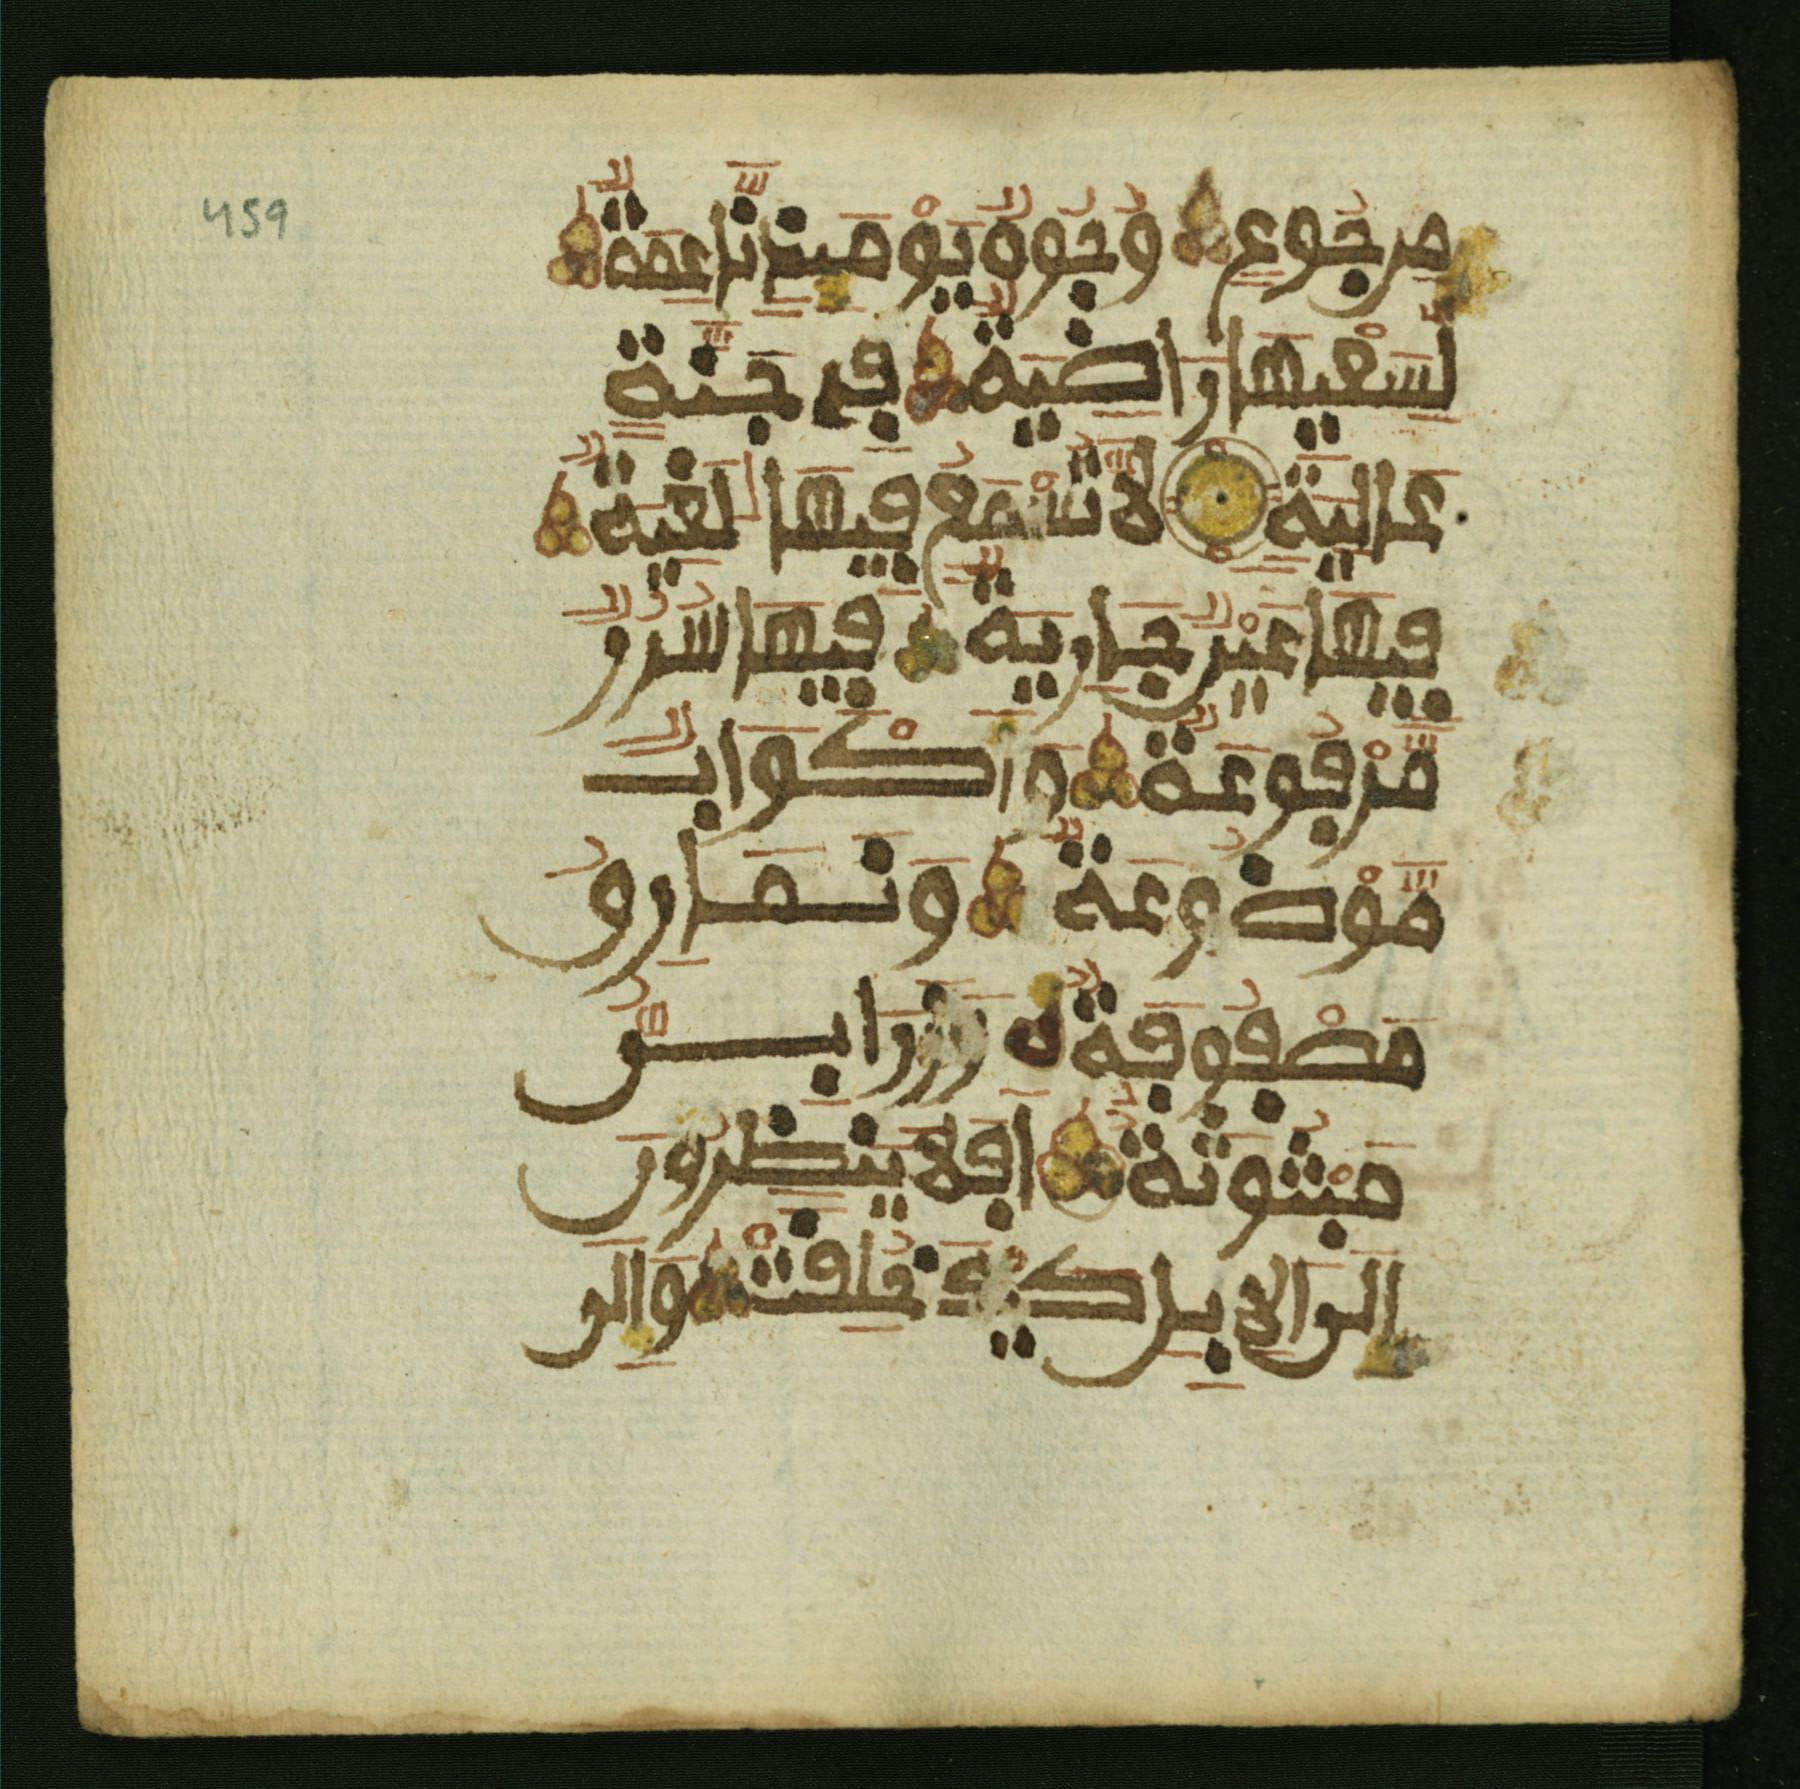 459
مِن جُوعٍ وُجُوهٌ يَوْمَئِذٍ نَّاعِمَةٌ
لِّسَعْيِهَا رَاضِيَةٌ فِي جَنَّةٍ
عَالِيَةٍ لَّا تُسْمَعُ فِيهَا لَٰغِيَةٌ
فِيهَا عَيْنٌ جَارِيَةٌ فِيهَا سُرُرٌ
مَّرْفُوعَةٌ وَأَكْوَابٌ
مَّوْضُوعَةٌ وَنَمَارِقُ
مَصْفُوفَةٌ وَزَرَابِيُّ
مَبْثُوثَةٌ أَفَلَا يَنظُرُونَ
إِلَى الْإِبِلِ كَيْفَ خُلِقَتْ وَإِلَى